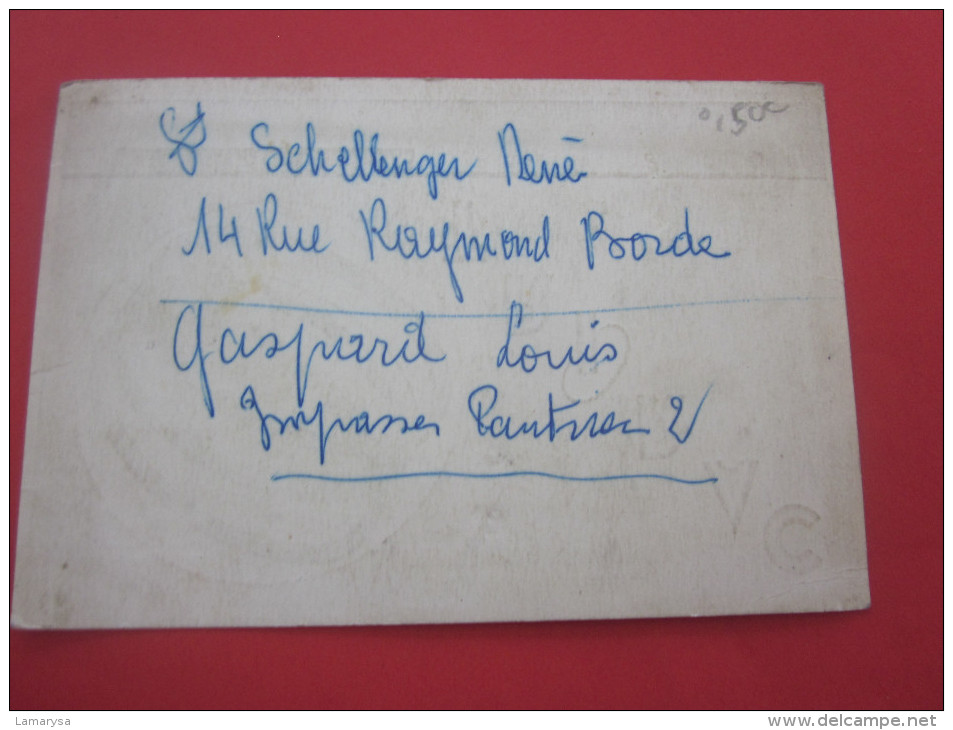 0,50c
Schellenger René
14 Rue Raymond Borde
Gaspard Louis
Impasse 2
C A
Lamarysa
www.delcampe.net